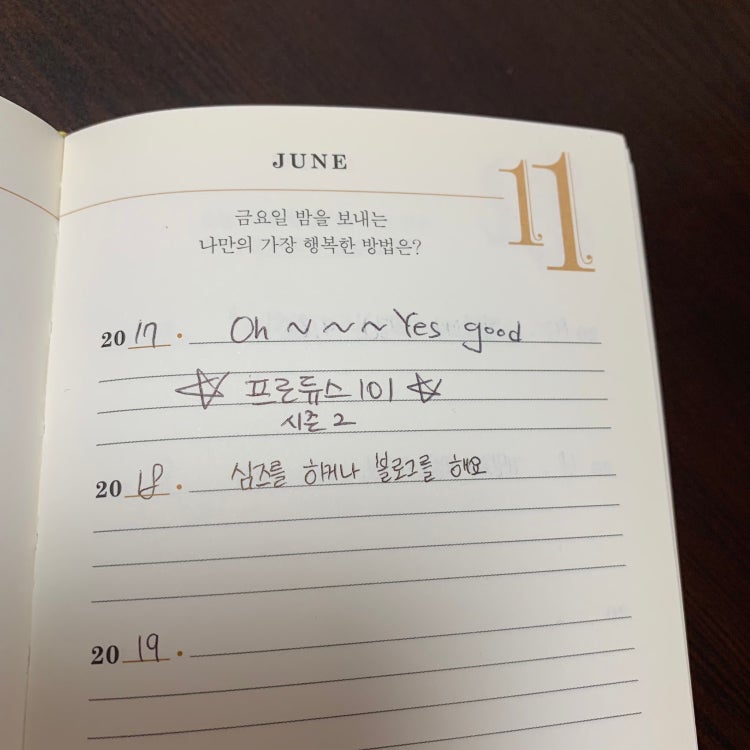 JUNE
11
금요일 밤을 보내는
나만의 가장 행복한 방법은?
2017 • Oh ~ ~ ~ Yes good
☆ 프로듀스 101 ☆
시즌 2
2018 • 심즈를 하거나 블로그를 해요
2019 •